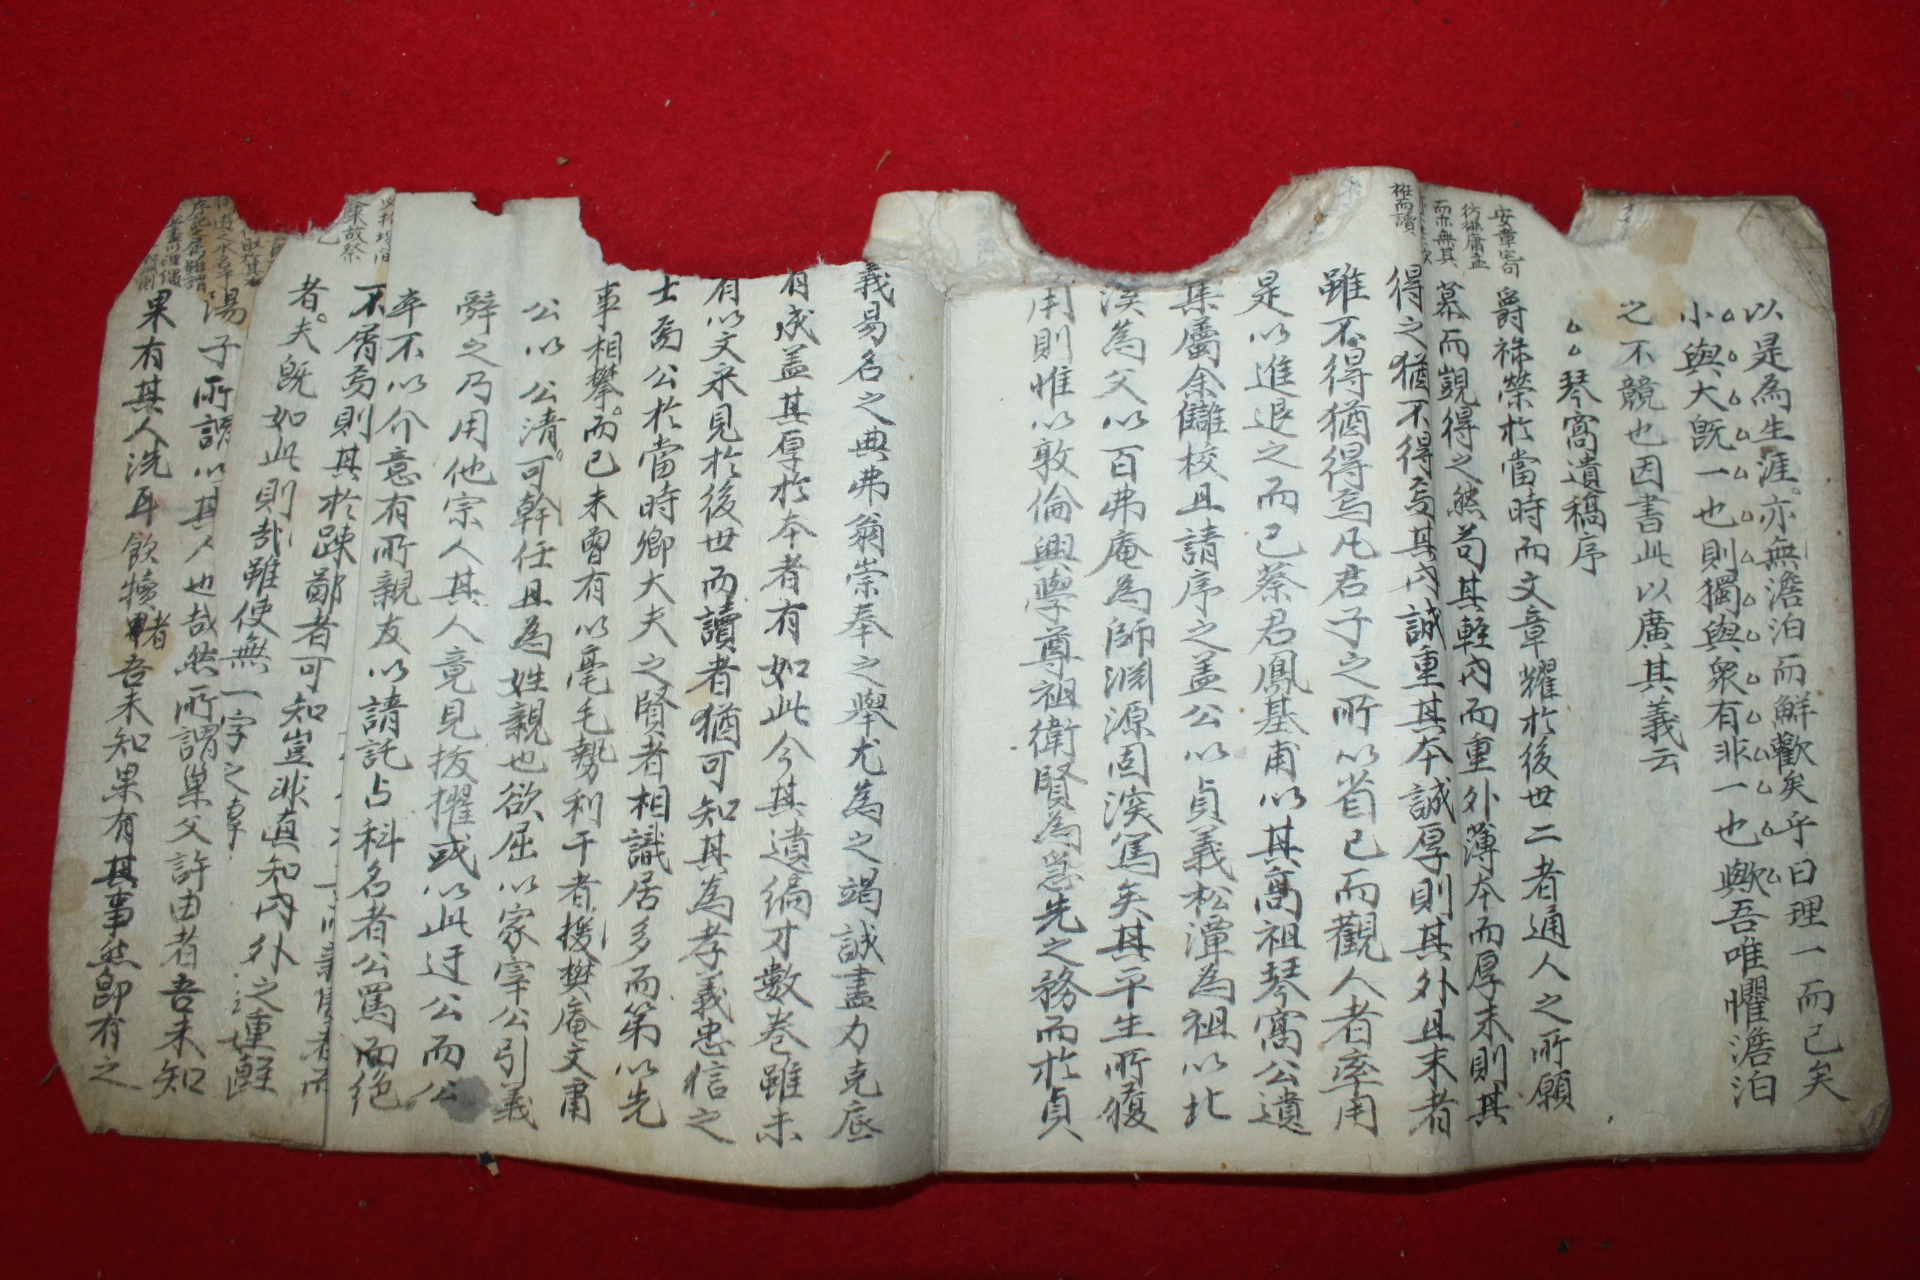 以是為生涯亦無澹泊而鮮歡矣乎曰理一而已矣
小與大旣一也則獨與衆有非一也歟吾唯懼澹泊
之不競也因書此以廣其義云
琴窩遺稿序
爵祿榮於當時而文章耀於後世二者通人之所願
慕而覬得之然苟其輕內而重外薄本而厚末則其
得之猶不得焉其內誠重其本誠厚則其外且末者
雖不得猶得焉凡君子之所以省己而觀人者率用
是以進退之而已蔡君鳳基甫以其高祖琴窩公遺
集屬余讎校且請序之盖公以貞義松潭為祖以北
溪為父以百弗庵為師淵源固深篤矣其平生所履
用則惟以敦倫興學尊祖衛賢為急先之務而於貞
義易名之典弗翁崇奉之舉尤為之竭誠盡力克底
有成盖其厚於本者有如此今其遺編才數卷雖未
有以文采見於後世而讀者猶可知其為孝義忠信之
士焉公於當時鄉大夫之賢者相識居多而第以先
事相攀而已未曾有以毫毛勢利干者援樊庵文肅
公以公清可幹任且為姓親也欲屈以家宰公引義
辭之乃用他宗人其人竟見拔擢或以此迂公而公
卒不以介意有所親友以請託占科名者公罵而絕
不屑焉則其於踈鄙者可知豈非真知內外之重輕
者夫旣如此則哉雖使無一字之
陽子所謂以其人也哉然所謂巢父許由者吾未知
果有其人洗耳飲犢者吾未知果有其事然卽有之
安章宅句
彷彿庸孟
而亦無其
班而讀